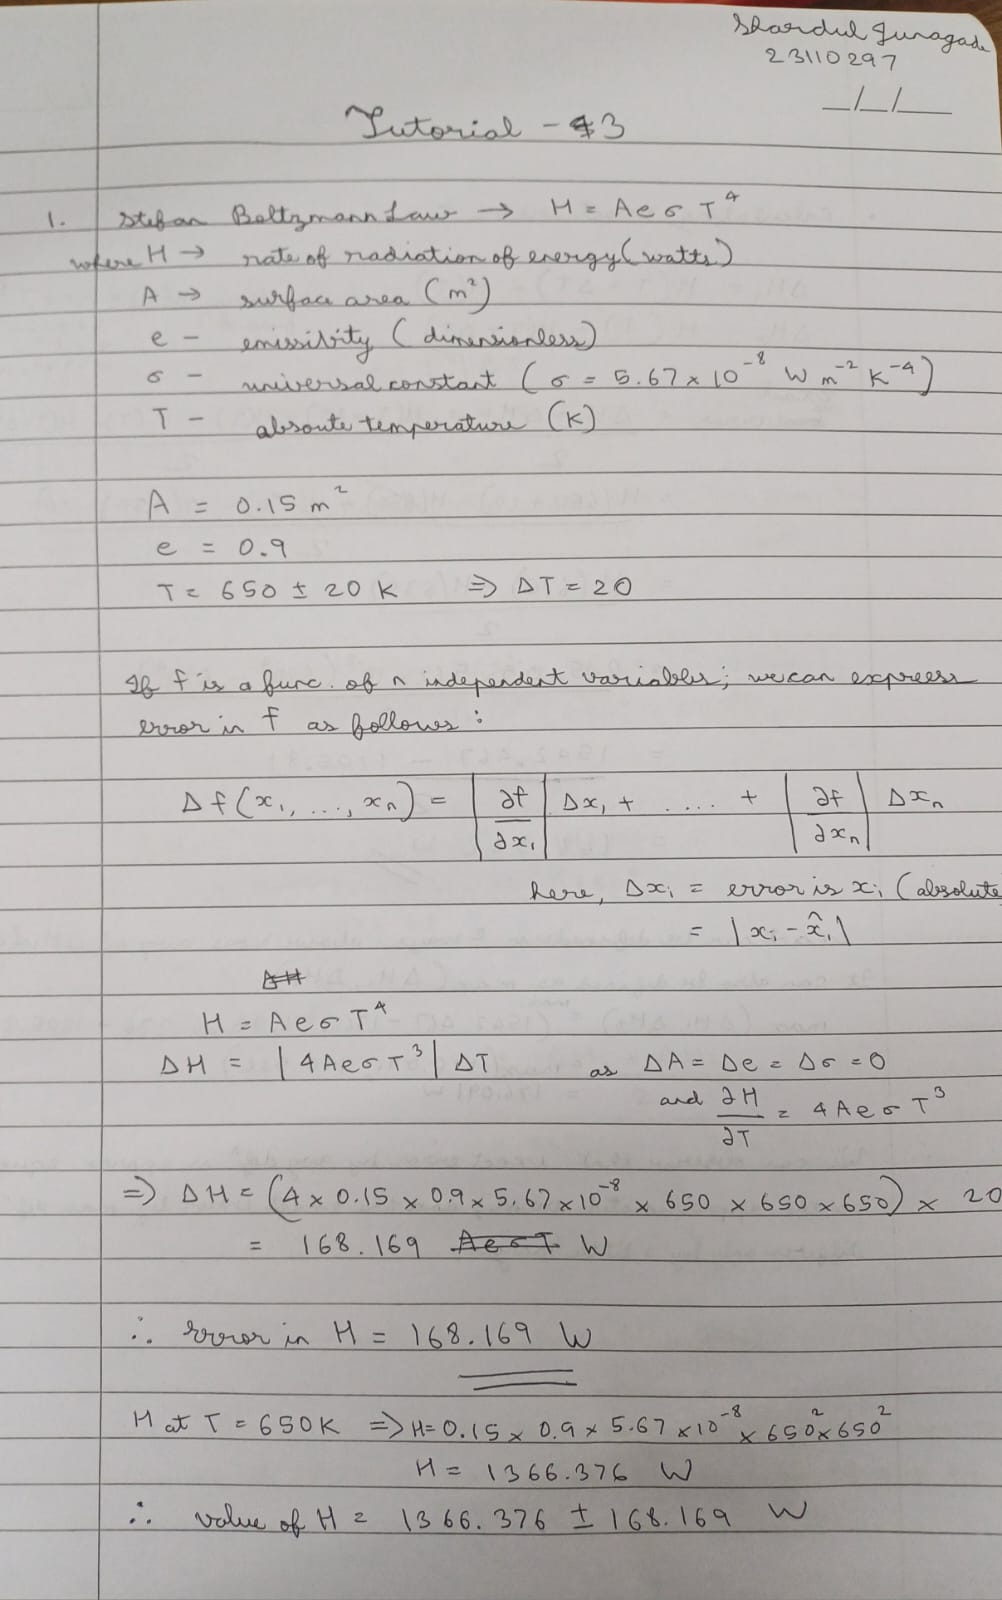 Shardul Juragade
23110297
_/_/_
Tutorial - 3
1. Stefan Boltzmann Law → H = AeσT⁴
where H → rate of radiation of energy (watts)
A → surface area (m²)
e - emissivity (dimensionless)
σ - universal constant (σ = 5.67 × 10⁻⁸ W m⁻² K⁻⁴)
T - absoute temperature (K)
A = 0.15 m²
e = 0.9
T = 650 ± 20 K ⇒ ΔT = 20
If f is a func. of n independent variables; we can express
error in f as follows :
Δf(x₁, ..., xₙ) = |∂f/∂x₁| Δx₁ + .... + |∂f/∂xₙ| Δxₙ
here, Δxᵢ = error is xᵢ (absolute
= |xᵢ - x̂ᵢ|
ΔH
H = AeσT⁴
ΔH = |4AeσT³| ΔT as ΔA = Δe = Δσ = 0
and ∂H/∂T = 4AeσT³
⇒ ΔH = (4 × 0.15 × 0.9 × 5.67 × 10⁻⁸ × 650 × 650 × 650) × 20
= 168.169 AeσT W
∴ Error in H = 168.169 W
H at T = 650K ⇒ H = 0.15 × 0.9 × 5.67 × 10⁻⁸ × 650² × 650²
H = 1366.376 W
∴ value of H = 1366.376 ± 168.169 W